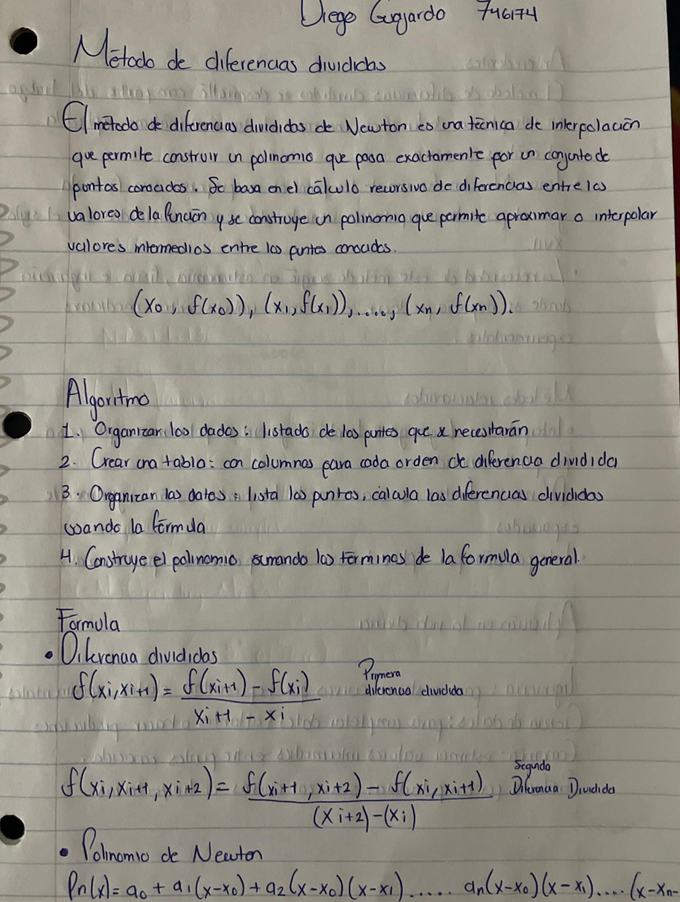 Diego Guajardo 746174
Método de diferencias divididas
El método de diferencias divididas de Newton es una técnica de interpolación
que permite construir un polinomio que pasa exactamente por un conjunto de
puntos conocidos. Se basa en el cálculo recursivo de diferencias entre los
valores de la función y se construye un polinomio que permite aproximar o interpolar
valores intermedios entre los puntos conocidos.
(x0, f(x0)), (x1, f(x1)), ...., (xn, f(xn)).
Algoritmo
1. Organizar los dados: listado de los puntos que se necesitarán
2. Crear una tabla: con columnas para cada orden de diferencia dividida
3. Organizan las datos: lista los puntos, calcula las diferencias divididas
usando la fórmula
4. Construye el polinomio sumando los términos de la formula general.
Fórmula
• Diferencia divididas
f(xi, xi+1) = f(xi+1) - f(xi) / xi+1 - xi Primera diferencia dividida
f(xi, xi+1, xi+2) = f(xi+1, xi+2) - f(xi, xi+1) / (xi+2) - (xi) Segunda Diferencia Dividida
• Polinomio de Newton
Pn(x) = a0 + a1(x-x0) + a2(x-x0)(x-x1) ..... an(x-x0)(x-x1)....(x-xn-